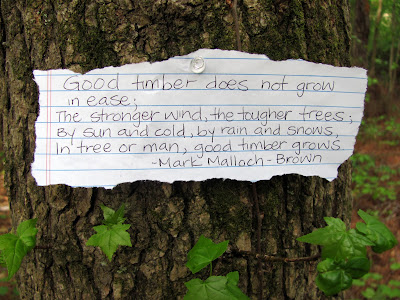 Good timber does not grow
in ease;
The stronger wind, the tougher trees;
By sun and cold, by rain and snows,
In tree or man, good timber grows.
-Mark Malloch-Brown